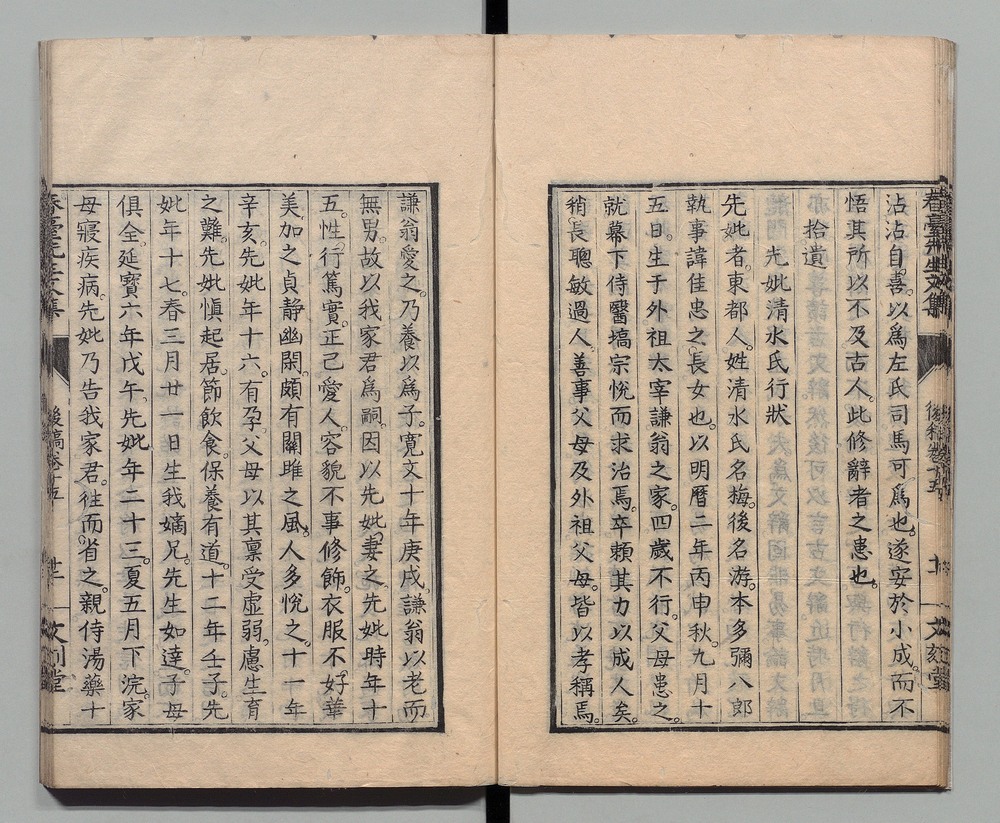 沾沾自喜。以爲左氏司馬可爲也。遂安於小成。而不
悟其所以不及古人。此修辭者之患也。
拾遺
先妣清水氏行狀
先妣者。東都人。姓清水氏名梅。後名游。本多彌八郎
執事諱佳忠之長女也。以明曆二年丙申秋。九月十
五日。生于外祖太宰謙翁之家。四歲不行。父母患之。
就幕下侍醫塙宗悅而求治焉。卒賴其力以成人矣。
稍長聰敏過人。善事父母及外祖父母。皆以孝稱焉。
謙翁愛之。乃養以爲子。寬文十年庚戌。謙翁以老而
無男。故以我家君爲嗣。因以先妣妻之。先妣時年十
五。性行篤實。正己愛人。容貌不事修飾。衣服不好華
美。加之貞靜幽閑。頗有關雎之風。人多悅之。十一年
辛亥。先妣年十六。有孕。父母以其稟受虛弱。慮生育
之難。先妣愼起居。節飲食。保養有道。十二年壬子。先
妣年十七。春三月廿一日生我嫡兄。先生如達。子母
俱全。延寶六年戊午。先妣年二十三。夏五月下浣。家
母寢疾病。先妣乃告我家君。往而省之。親侍湯藥十
後稿卷十五
文刻堂